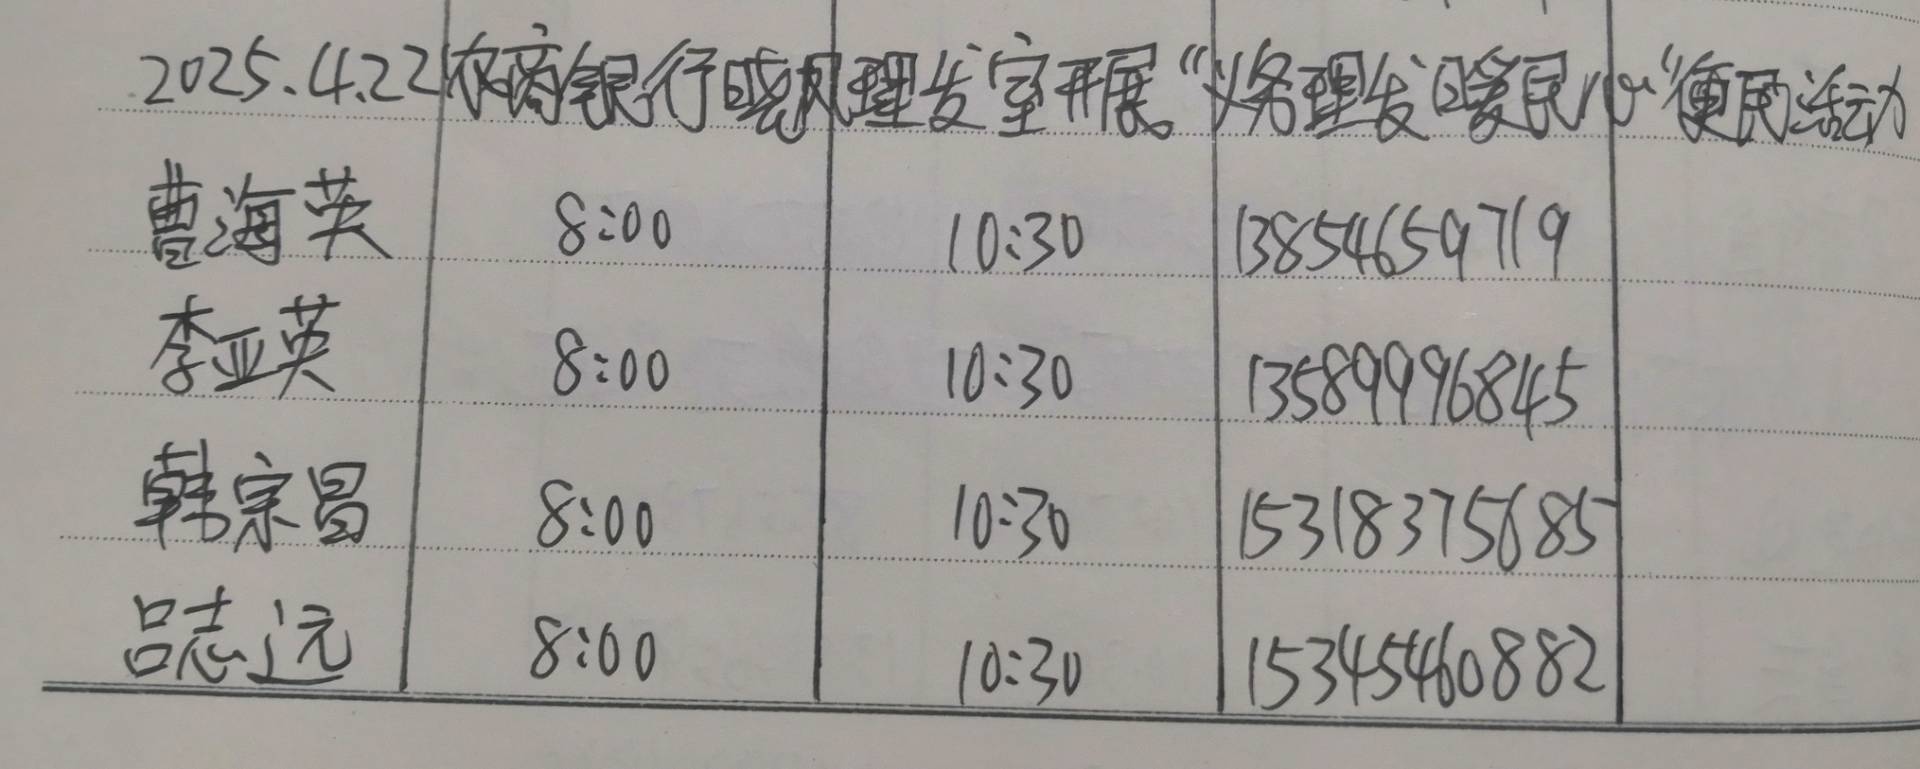 2025.4.22农商银行晓风理发室开展“义务理发暖民心”便民活动
曹海英 8:00 10:30 13854659719
李亚英 8:00 10:30 13589996845
韩宗昌 8:00 10:30 15318375685
吕志远 8:00 10:30 15345460882